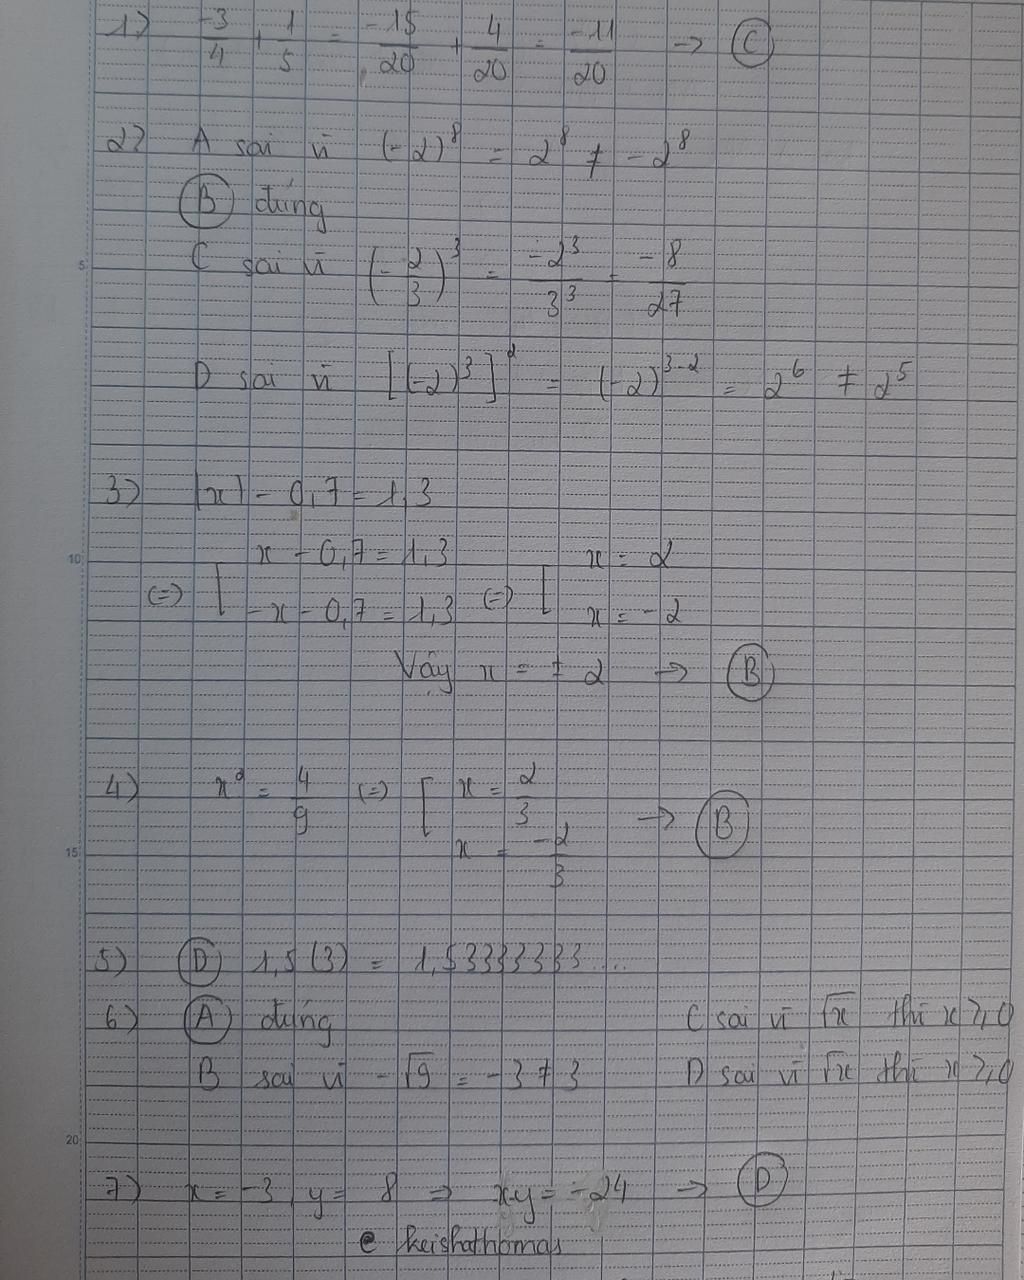 1) -3/4 + 1/5 = -15/20 + 4/20 = -11/20 → C
2) A sai vì (-2)^8 = 2^8 ≠ -2^8
B đúng
5
C sai vì (-2/3)^3 = -2^3/3^3 = -8/27
D sai vì [(-2)^3]^2 = (-2)^3-2 = 2^6 ≠ 2^5
3) |x| - 0,7 = 1,3
10
(=) [ x - 0,7 = 1,3 (=) [ x = 2
-x - 0,7 = 1,3 x = -2
Vậy x = ± 2 → B
4) x^2 = 4/9 (=) [ x = 2/3 → B
15
x = -2/3
5) D 1,5(3) = 1,53333333....
6) A đúng C sai vì √x thì x ≥ 0
B sai vì -√9 = -3 ≠ 3 D sai vì √x thì x ≥ 0
20
7) x = -3 y = 8 => x.y = -24 → D
@ keishathomas